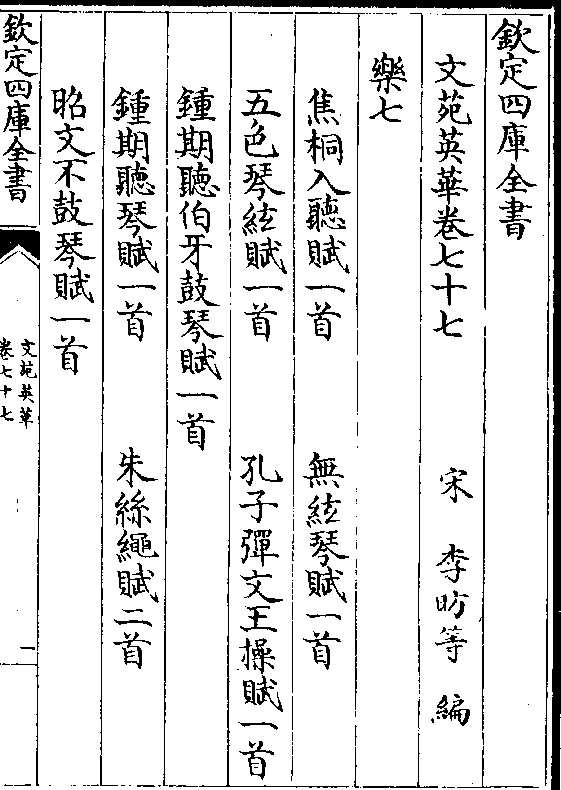 欽定四庫全書
文苑英華卷七十七　宋　李昉等　編
樂七
焦桐入聽賦一首　無絃琴賦一首
五色琴絃賦一首　孔子彈文王操賦一首
鍾期聽伯牙鼓琴賦一首
鍾期聽琴賦一首　朱絲繩賦二首
昭文不鼓琴賦一首
欽定四庫全書
文苑英華
卷七十七
一